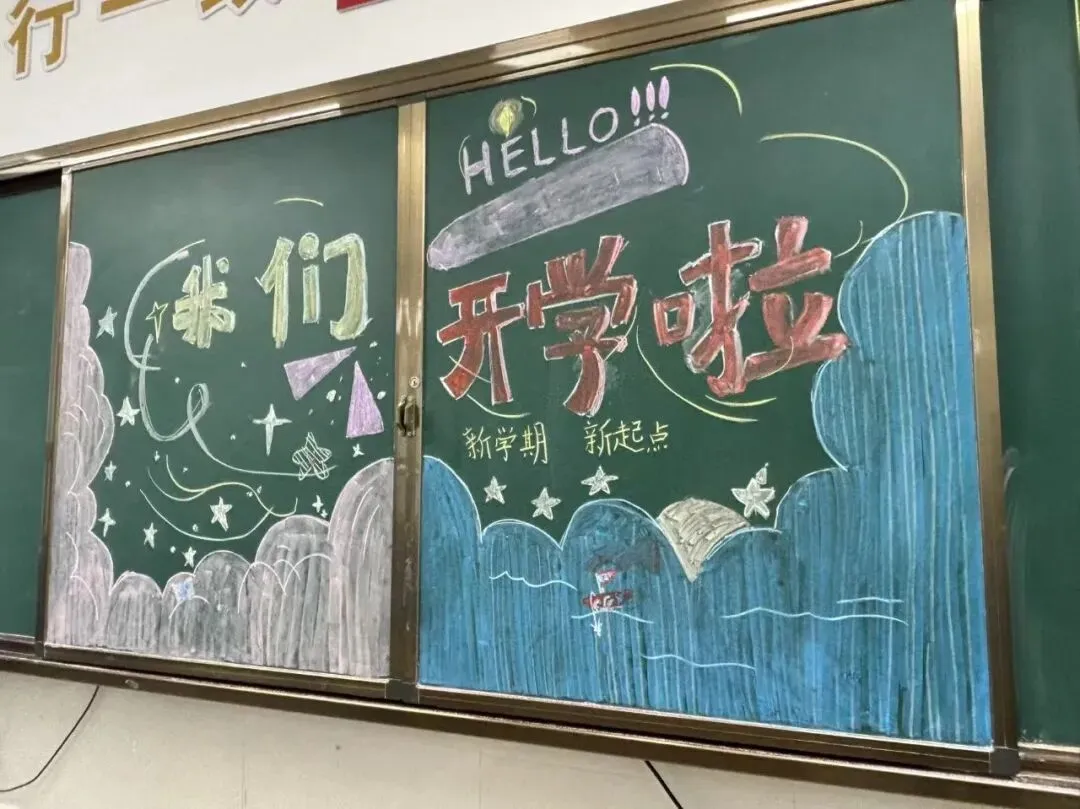 行
HELLO!!!
我们
开学啦
新学期 新起点